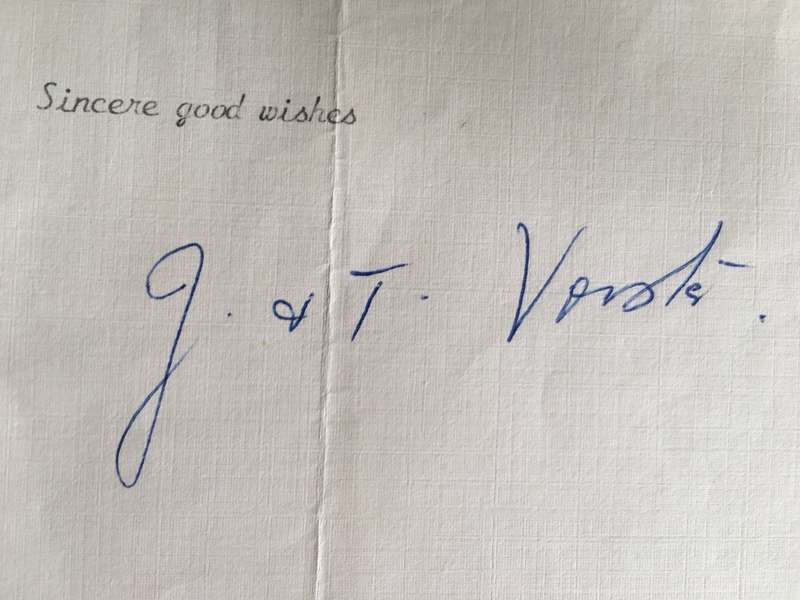 Sincere good wishes
J. & T. Vorster.